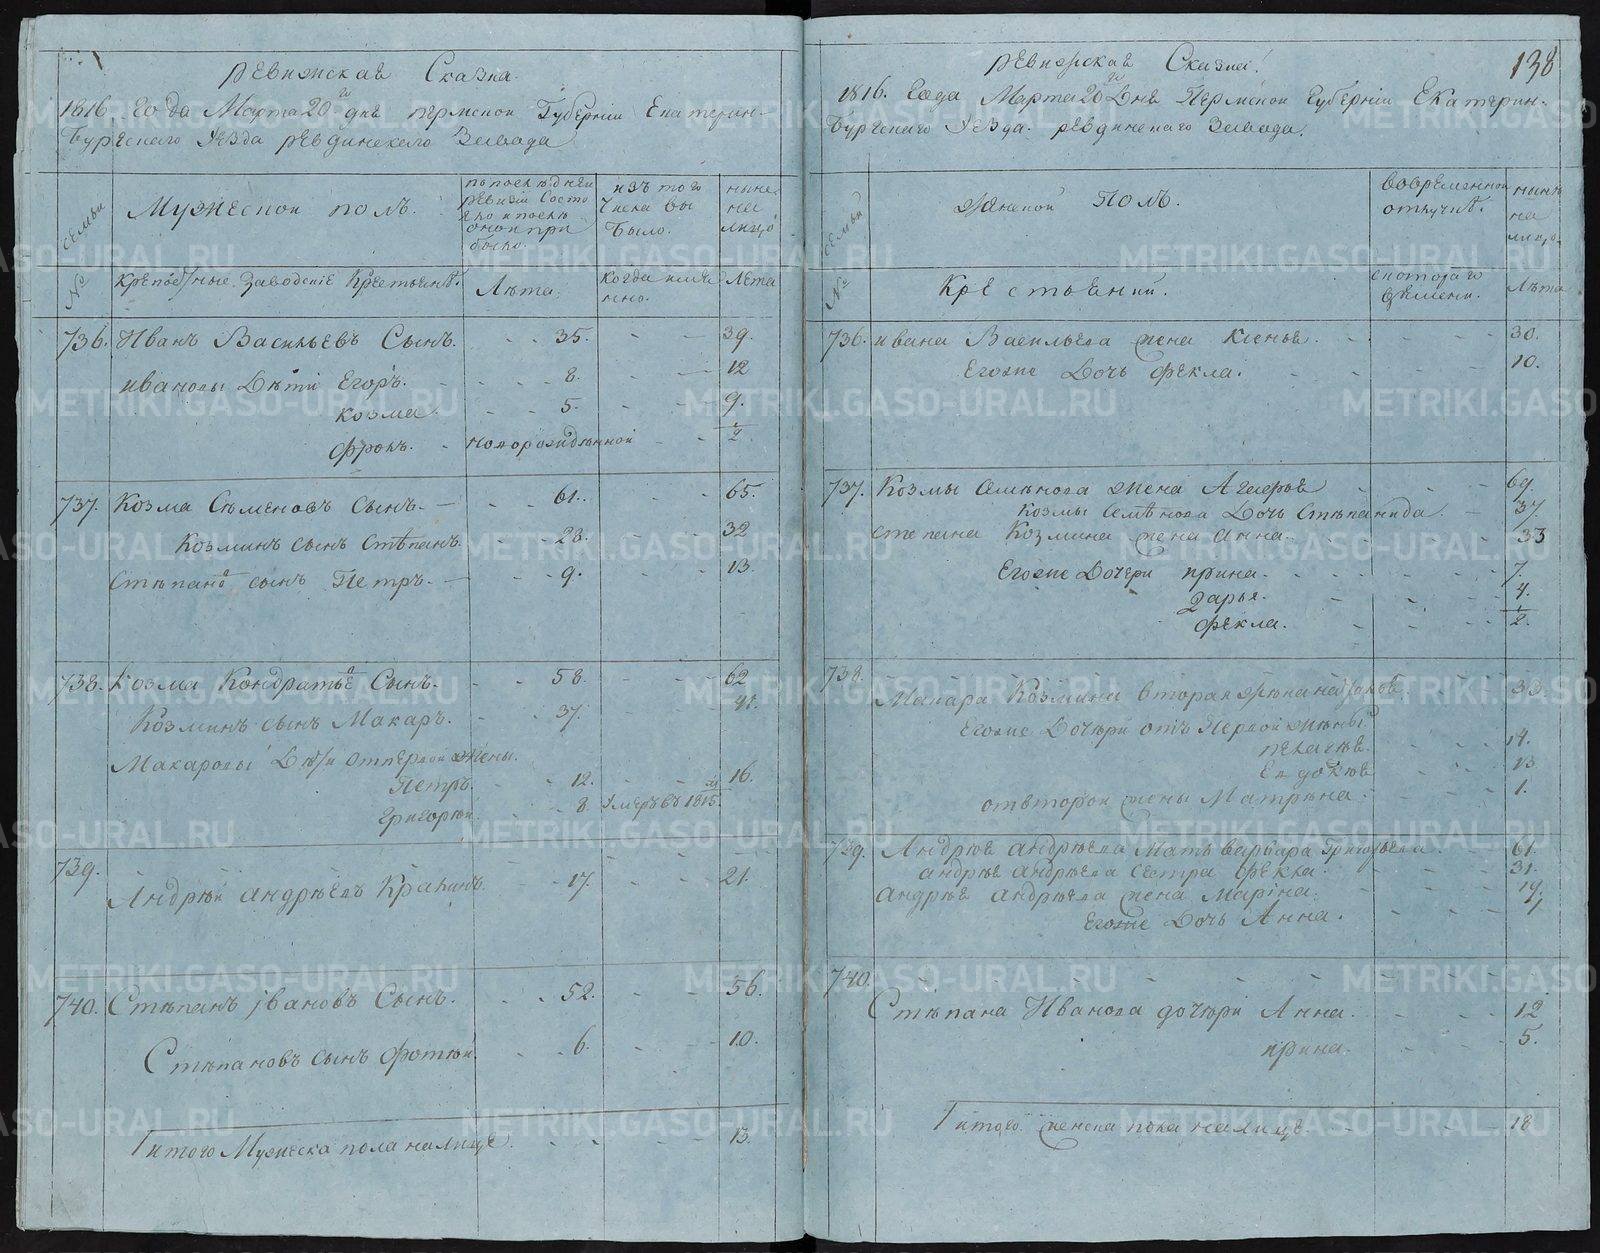 Ревижская Сказка.
1816. Года Марта 20 го дня Пермской Губернiи Екатерин-
бургскаго Уезда ревдинскаго Завода
№ семьи
Мужеской полъ.
по последней ревизiи состояло и после оной прибыло.
изъ того числа выбыло.
ныне на лицо
Крепостные Заводскiе Крестьянѣ.
Лѣта.
когда имянно.
Лета
736. Иванъ Васильевъ Сынъ. 35. 39.
ивановы Дѣти Егоръ. 8. 12
козма. 5. 9.
фролъ. новорожденной ½
737. Козма Сѣменовъ Сынъ. 61. 65.
Козминъ сынъ Стѣпанъ. 28. 32
Стѣпанов сынъ Петръ. 9. 13.
738. Козма Кондратьев Сынъ. 58. 62
Козминъ сынъ Макаръ. 37. 41.
Макаровы Дѣти отпервой жены.
Петръ. 12. 16.
Григорiй. 8 Умеръ въ 1815.
739.
Андрѣй андрѣевъ 17. 21.
740. Стѣпанъ iвановъ Сынъ. 52. 56.
Стѣпановъ сынъ фотѣй. 6. 10.
Iитого Мужеска пола налице. 13.
138
Ревижская Сказка!
1816. Года Марта 20 го Дня Пермской Губернiи Екатерин-
бургскаго Уѣзда. ревдинскаго Завода.
№ семьи
Женской Полъ.
вовременной отлучкѣ.
нынѣ на лицо.
Крестьянки.
скотораго времени.
Лѣта
736. ивана Васильева жена Ксенья. 30.
Егоже Дочь фекла. 10.
737. Козмы Семѣнова жена Агафья 69
Козмы Семѣнова Дочь Стѣпанида. 37.
Степана Козмина жена анна. 33
Егоже Дочери ирина. 7.
Дарья. 4.
фекла. ½.
738.
Макара Козмина вторая жѣна 33.
Егоже Дочѣри отъ Первой жѣны
пелагѣя. 14.
Евдокѣя 13
отвторой жены Матрѣна. 1.
739. Андрѣя андрѣева Мать варвара григорьева. 61.
андрѣя андрѣева Сестра фекла. 31.
Андрѣя андрѣева жена Марiна. 19.
Егоже Дочь Анна. 1
740.
Стѣпана Иванова дочѣри Анна. 12
ирина. 5.
Iитого женска пола налице. 18
METRIKI.GASO-URAL.RU